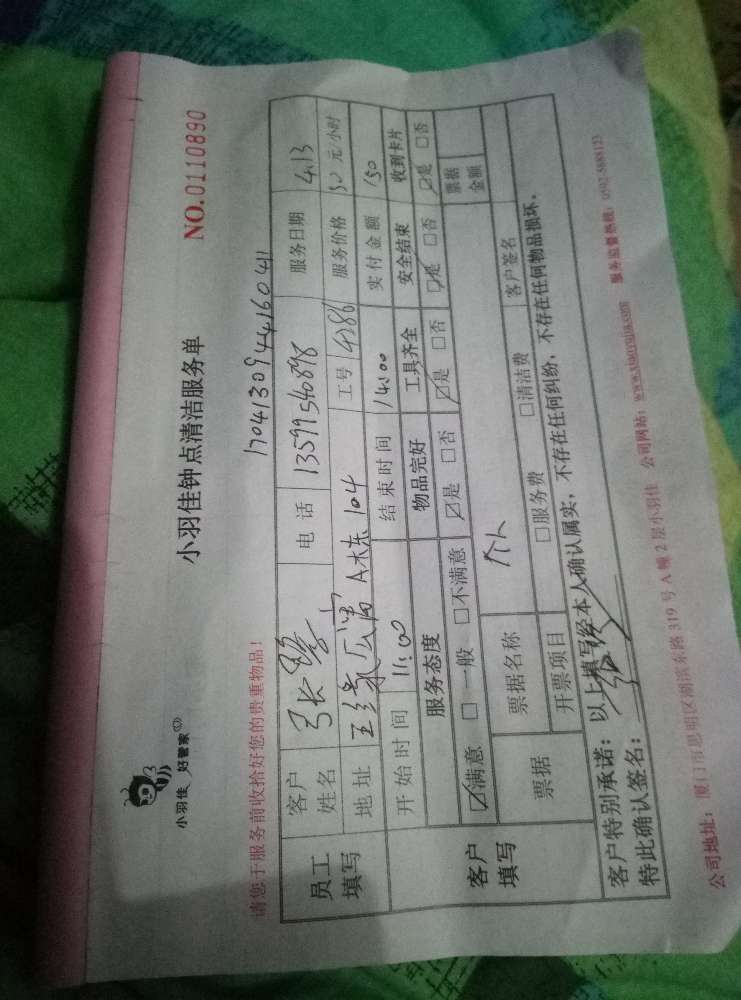 小羽佳 好管家
小羽佳钟点清洁服务单
NO.0110890
请您于服务前收拾好您的贵重物品！
17041309441604​1
员工填写
客户姓名 张 电话 13599540898 服务日期 4.13
地址 A栋104 工号 服务价格 50元/小时
开始时间 11:00 结束时间 14:00 实付金额 150
客户填写
服务态度 物品完好 工具齐全 安全结束 收到卡片
☑满意 □一般 □不满意 ☑是 □否 ☑是 □否 ☑是 □否 ☑是 □否
票据 票据名称 个人 客户签名 票据金额
开票项目 □服务费 □清洁费
客户特别承诺：以上填写经本人确认属实，不存在任何纠纷，不存在任何物品损坏。
特此确认签名：
公司地址：厦门市思明区湖滨东路319号A幢2层小羽佳 公司网站：www.xiaoyujia.com 服务监督热线：0592-5888123